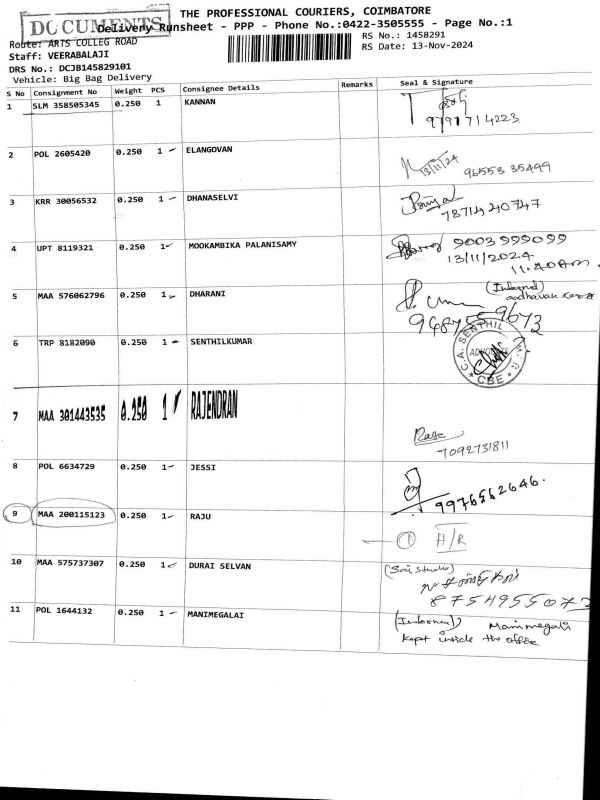 DOCUMENTS
THE PROFESSIONAL COURIERS, COIMBATORE
Delivery Runsheet - PPP - Phone No.:0422-3505555 - Page No.:1
Route: ARTS COLLEG ROAD
RS No.: 1458291
Staff: VEERABALAJI
RS Date: 13-Nov-2024
DRS No.: DCJB145829101
Vehicle: Big Bag Delivery
S No Consignment No Weight PCS Consignee Details Remarks Seal & Signature
1 SLM 358505345 0.250 1 KANNAN
9791714223
2 POL 2605420 0.250 1 ELANGOVAN
13/11/24 96553 35499
3 KRR 30056532 0.250 1 DHANASELVI
78714 40747
4 UPT 8119321 0.250 1 MOOKAMBIKA PALANISAMY 9003999099
13/11/2024
11.40am
5 MAA 576062796 0.250 1 DHARANI
6 TRP 8182090 0.250 1 SENTHILKUMAR
C.A. SENTHIL
ADVOCATE
CBE
7 MAA 301443535 0.250 1 RAJENDRAN
7092731811
8 POL 6634729 0.250 1 JESSI
9976562646.
9 MAA 200115123 0.250 1 RAJU
1 H/R
10 MAA 575737307 0.250 1 DURAI SELVAN
(Sai Studio)
8754955072
11 POL 1644132 0.250 1 MANIMEGALAI
Manimegali
kept inside the office